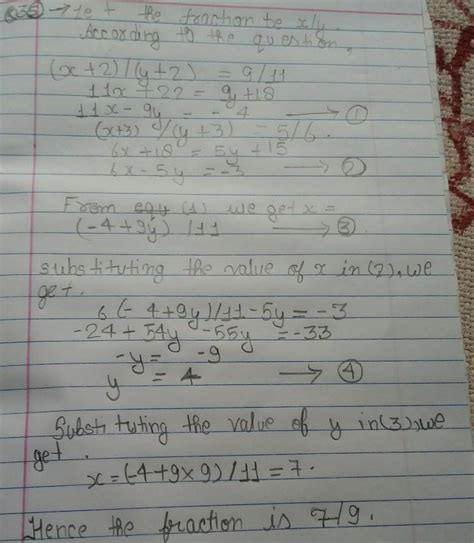 Q35 → let the fraction be x/y.
According to the question,
(x+2)/(y+2) = 9/11
11x + 22 = 9y + 18
11x - 9y = - 4 → ①
(x+3)/(y+3) = 5/6.
6x + 18 = 5y + 15
6x - 5y = -3 → ②
From (1) we get x =
(-4+9y)/11 → ③
substituting the value of x in (2), we
get.
6(-4+9y)/11-5y = -3
-24 + 54y -55y = -33
-y = -9
y = 4 → ④
Substituting the value of y in (3), we
get.
x = (-4+9×9)/11 = 7.
Hence the fraction is 7/9.